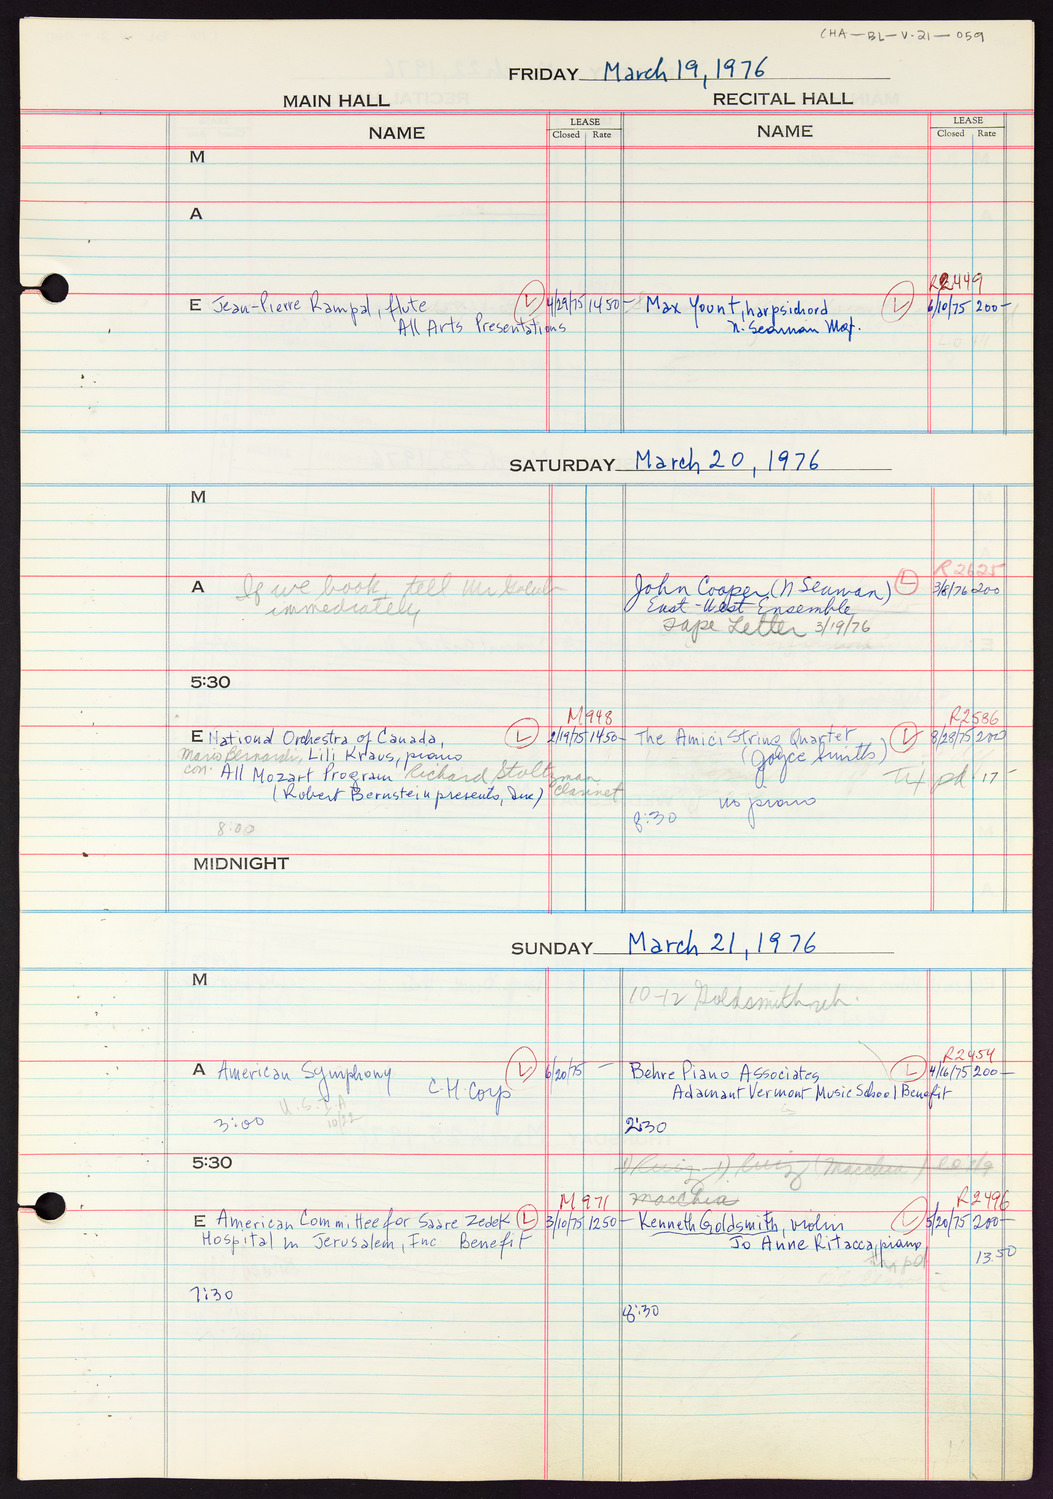 CHA-BL-V-21-059
FRIDAY March 19, 1976
MAIN HALL RECITAL HALL
NAME LEASE Closed Rate NAME LEASE Closed Rate
M
A
R2449
E Jean-Pierre Rampal, flute L 4/29/75 1450- Max Yount, harpsichord L 6/10/75 200-
All Arts Presentations N. Seaman Mgt.
SATURDAY March 20, 1976
M
R2625
A If we book, tell Mr John Cooper (N Seaman) L 3/8/76 200
immediately East-West Ensemble
Tape Letter 3/19/76
5:30
M948 R2586
E National Orchestra of Canada, L 2/19/75 1450- The Amici String Quartet L 8/28/75 200
Mario Bernardi, Lili Kraus, piano (Joyce Smith)
con. All Mozart Program Richard Stoltzman Tx pd 17-
(Robert Bernstein presents, Inc) clarinet no piano
8:00 8:30
MIDNIGHT
SUNDAY March 21, 1976
M
10-12 Goldsmith reh.
R2454
A American Symphony L 6/20/75 - Behre Piano Associates L 4/16/75 200-
C.H Corp Adamant Vermont Music School Benefit
U.S.I A
10/22
3:00 2:30
5:30 1) Ruiz 1) Ruiz (Macchia)
Macchia
M971 R2496
E American Committee for Saare Zedek L 3/10/75 1250- Kenneth Goldsmith, violin L 5/20/75 200-
Hospital in Jerusalem, Inc Benefit Jo Anne Ritacca, piano
pd 13.50
7:30 8:30